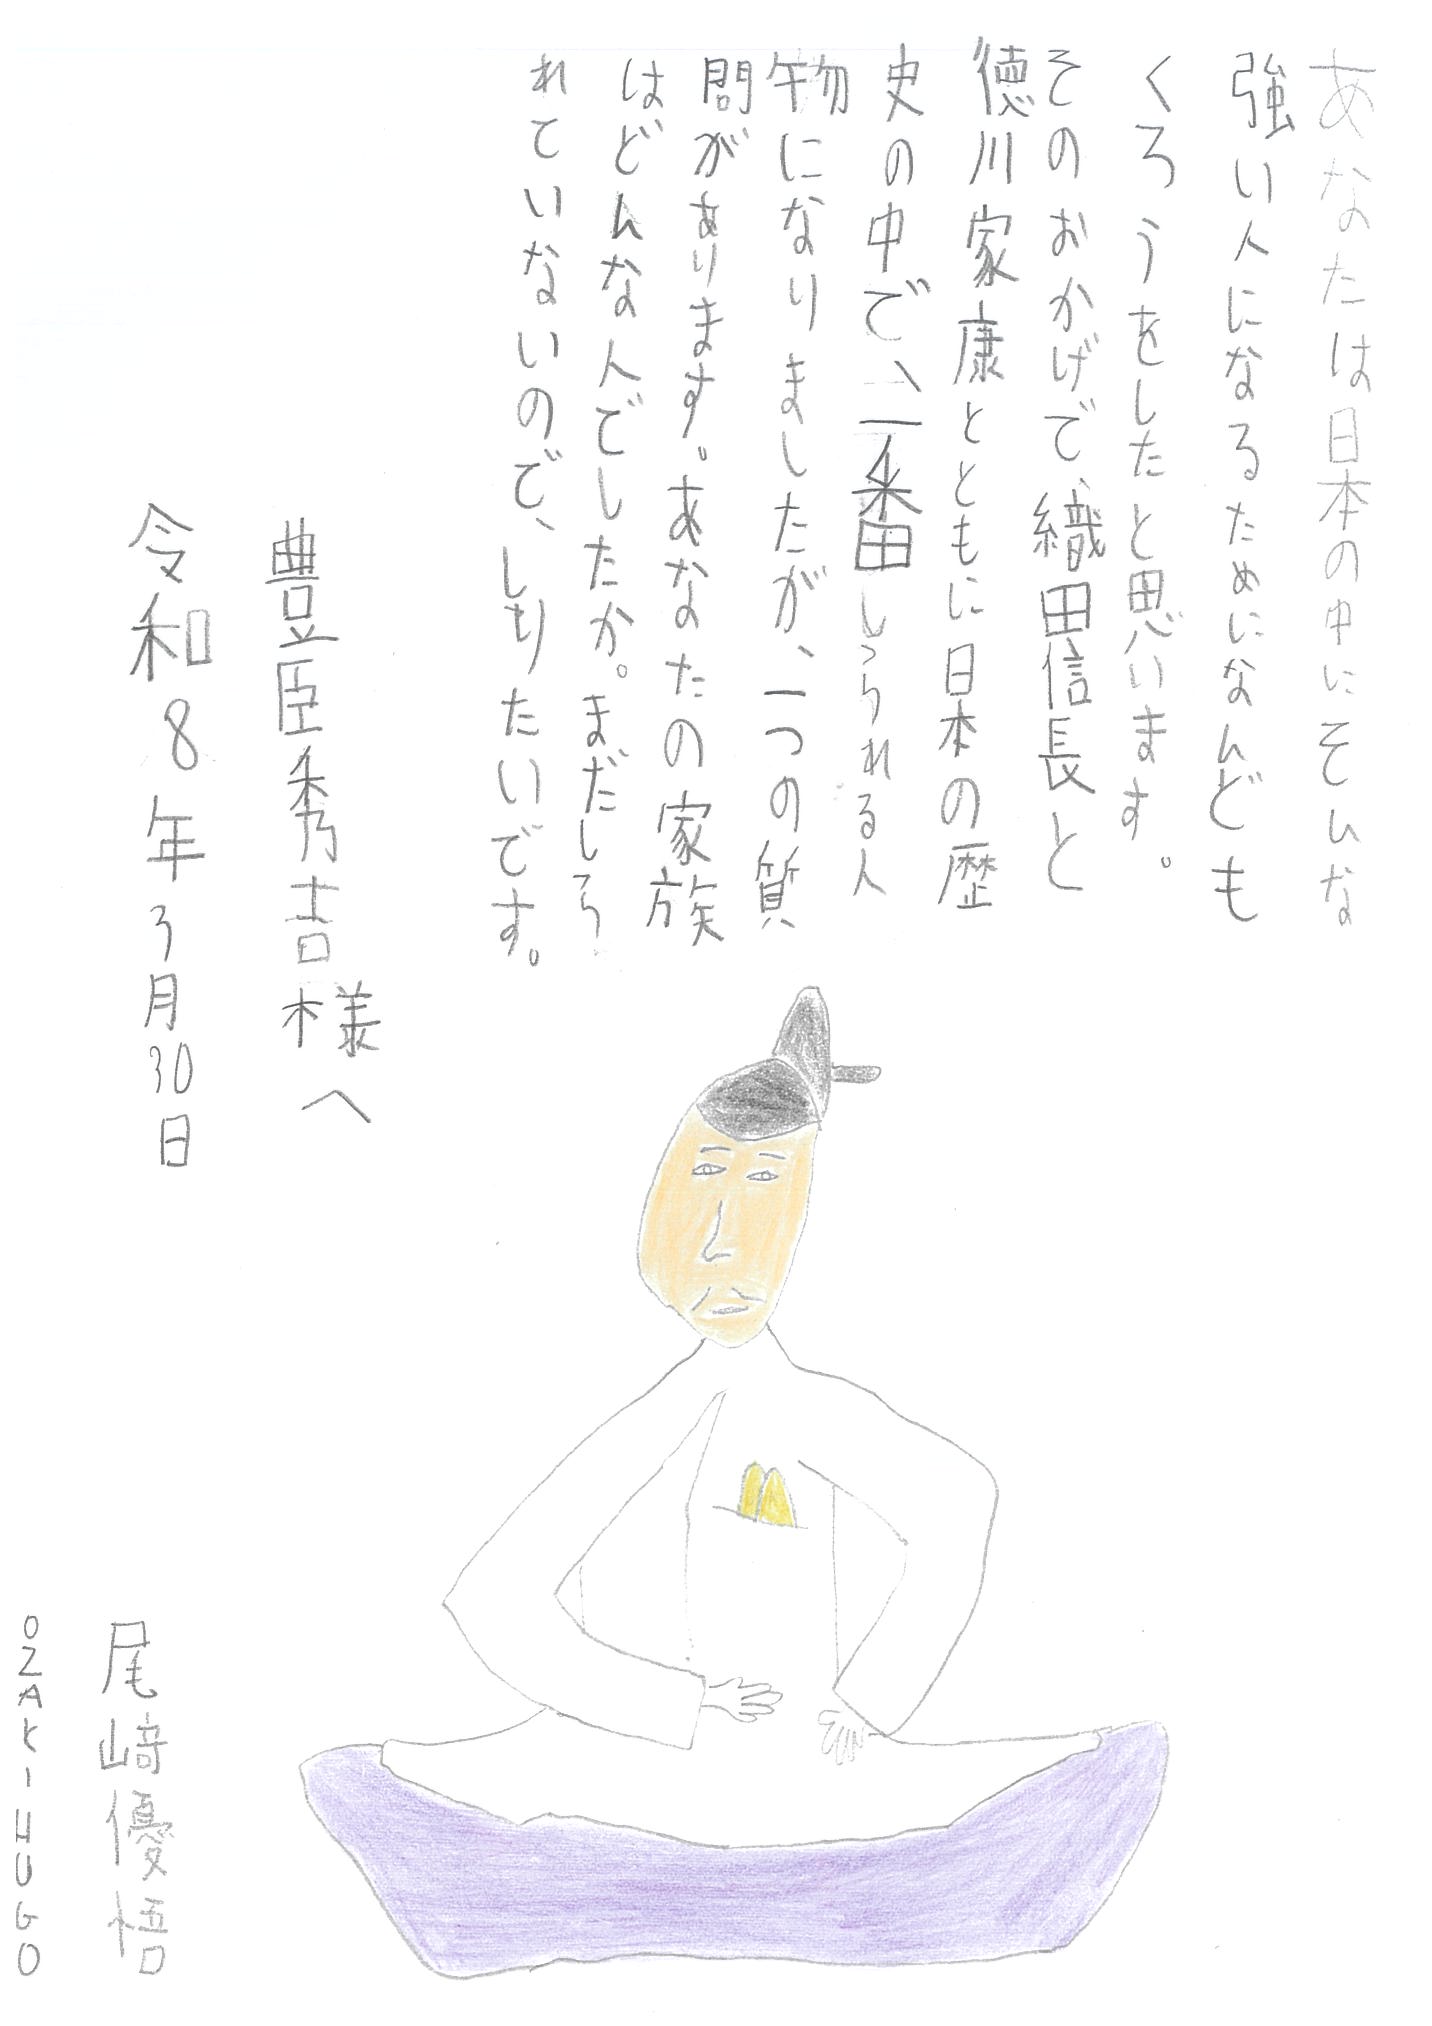 あなたは日本の中にそんな
強い人になるためになんども
くろうをしたと思います。
そのおかげで、織田信長と
徳川家康とともに日本の歴
史の中で、一番しられる人
物になりましたが、一つの質
問があります。あなたの家族
はどんな人でしたか。まだしら
れていないので、しりたいです。
豊臣秀吉様へ
令和8年3月30日
尾﨑優悟
OZAKI HUGO